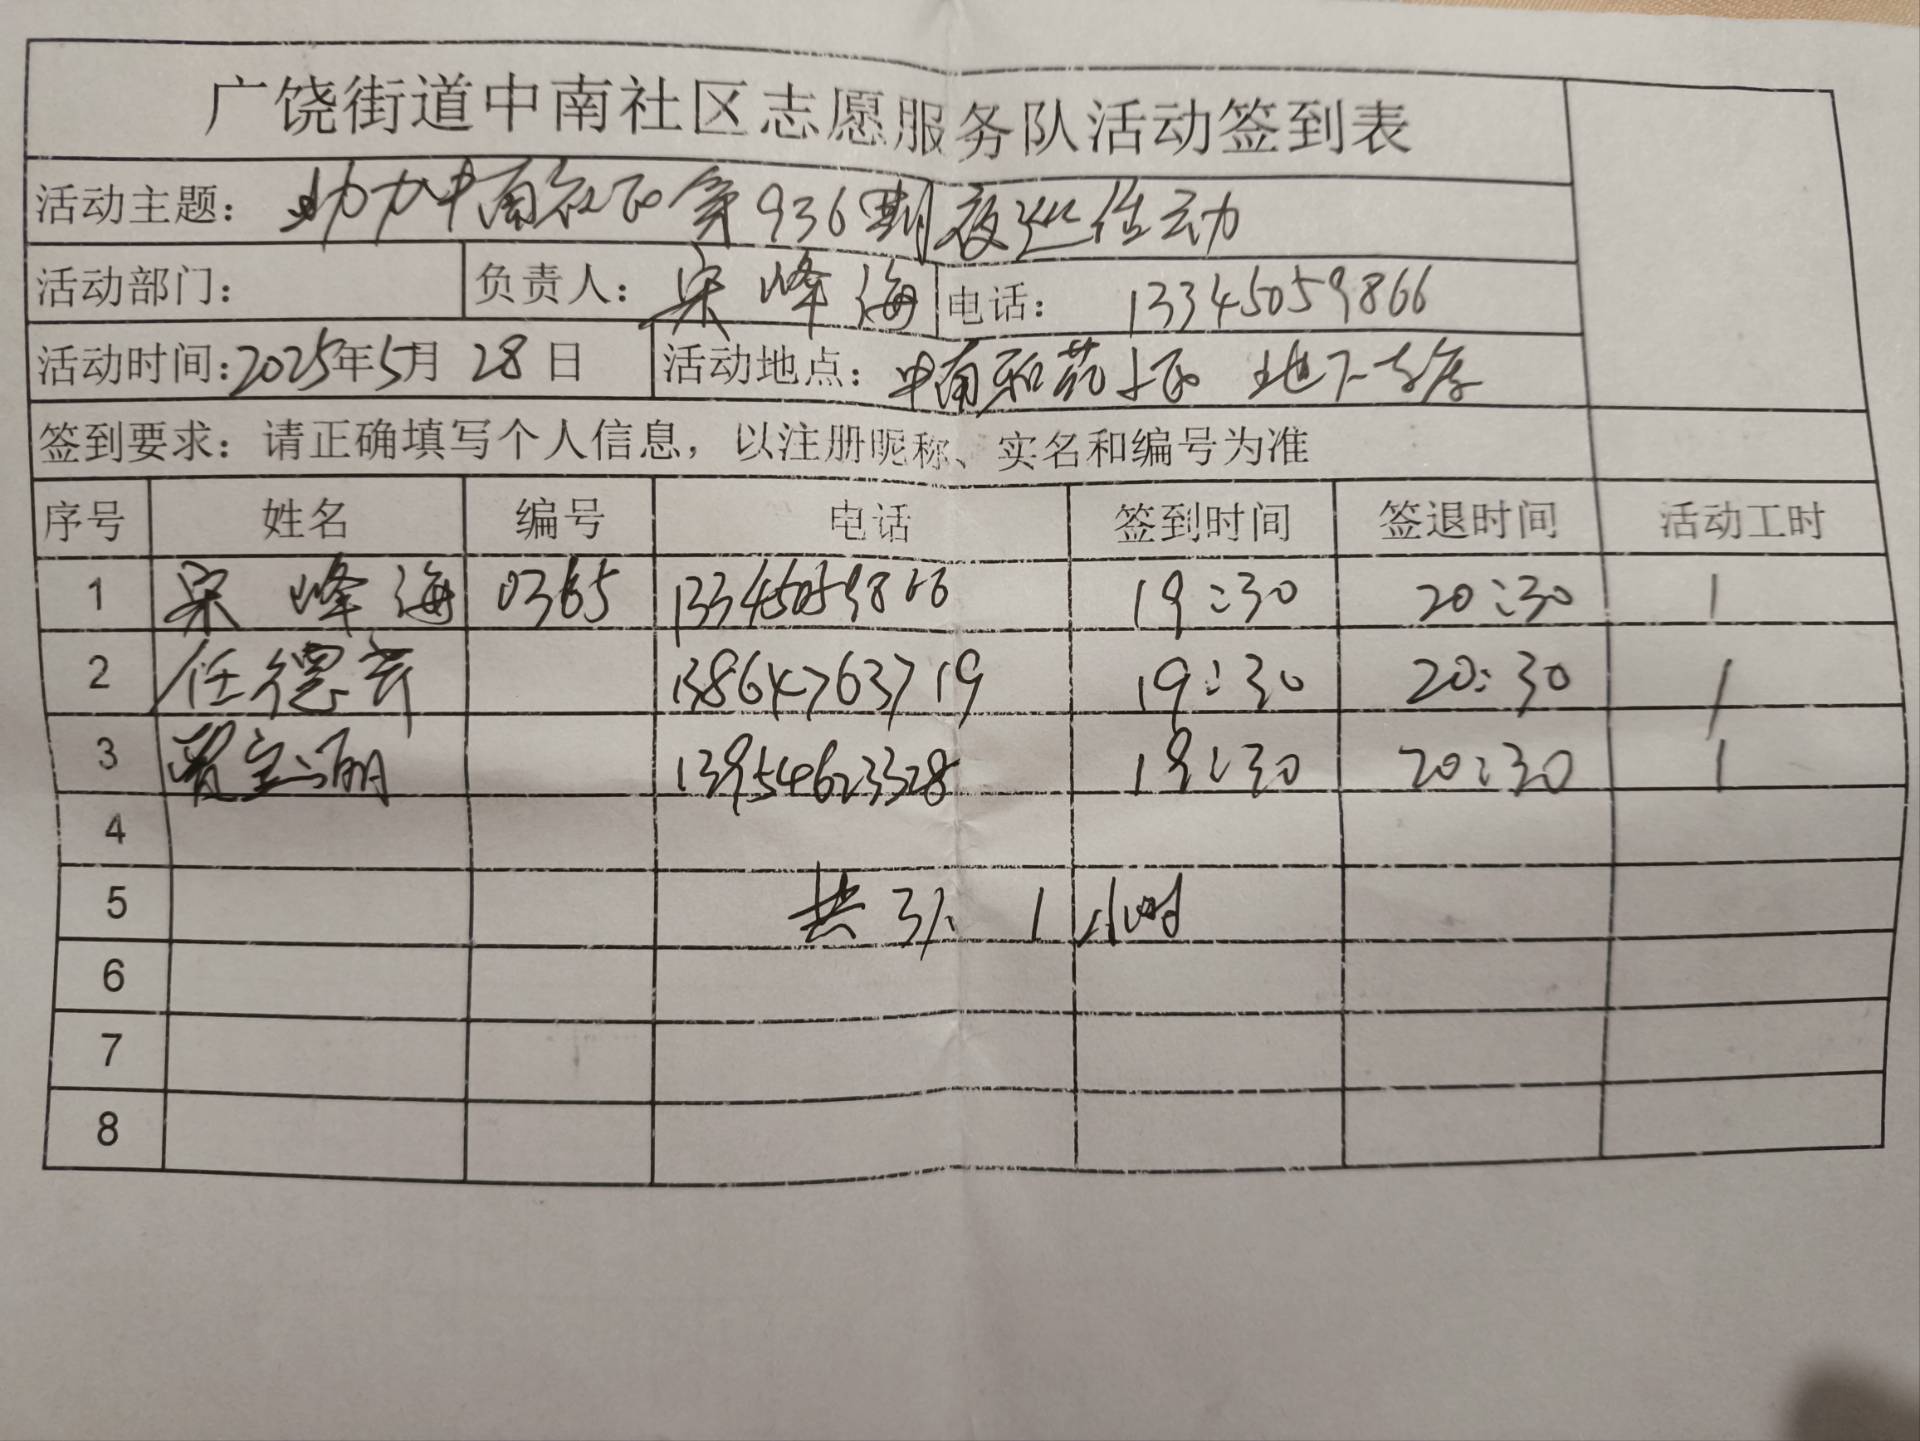 广饶街道中南社区志愿服务队活动签到表
活动主题：助力中南社区第936期夜巡活动
活动部门： 负责人：宋峰海 电话：13345059866
活动时间：2025年5月28日 活动地点：中南和苑小区 地下车库
签到要求：请正确填写个人信息，以注册昵称、实名和编号为准
序号 姓名 编号 电话 签到时间 签退时间 活动工时
1 宋峰海 0365 13345059866 19:30 20:30 1
2 任德 13864763719 19:30 20:30 1
3 贾宝丽 13954623328 19:30 20:30 1
4
5 共3人 1小时
6
7
8